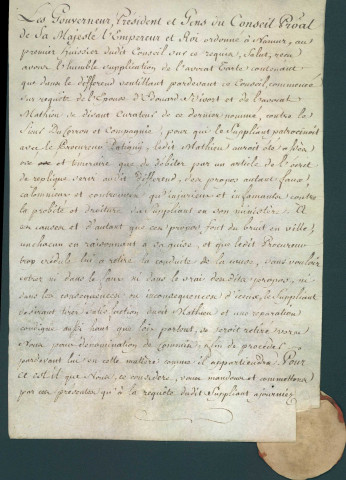 Les Gouverneur, President et Gens du Conseil Proâl
de Sa Majesté l'Empereur et Roi ordonné à Namur, au
premier huissier dudit Conseil sur ce requis, Salut, reçu
avons l'humble supplication de l'avocat contenant
que dans le différend ventillant pardevant ce Conseil, commencé
sur requête de l'Epouse d'Edouard et de l'avocat
Mathieu se disant Curateur de ce dernier nommé, contre le
Sieur Du Corron et Compagnie, pour qui le Suppliant patrocinoit
avec le Procureur ledit Mathieu auroit osé
et temeraire que de débiter par un article de l'ecrit
de replique servi audit Différend, des propos autant faux
calomnieux et controuvés qu'injurieux et infamants contre
la probité et droiture du Supliant en son ministère. Et
en causes et d'autant que ces propos font du bruit en ville,
un chacun en raisonnant à sa guise, et que ledit Procureur
trop crédule lui a retiré la conduite de la cause, sans vouloir
entrer ni dans le faux ni dans le vrai desdits propos, ni
dans les consequences ou inconsequences d'iceux, le Suppliant
desirant tirer satisfaction dudit Mathieu et une reparation
condigne aussi haut que loix portent, se seroit retiré vers
Nous pour dénomination de Commis, afin de procéder
pardevant lui en cette matière comme il appartiendra. Pour
ce est il que Nous, ce consideré, vous mandons et commettons
par ces présentes qu'à la requête dudit Suppliant ajournés